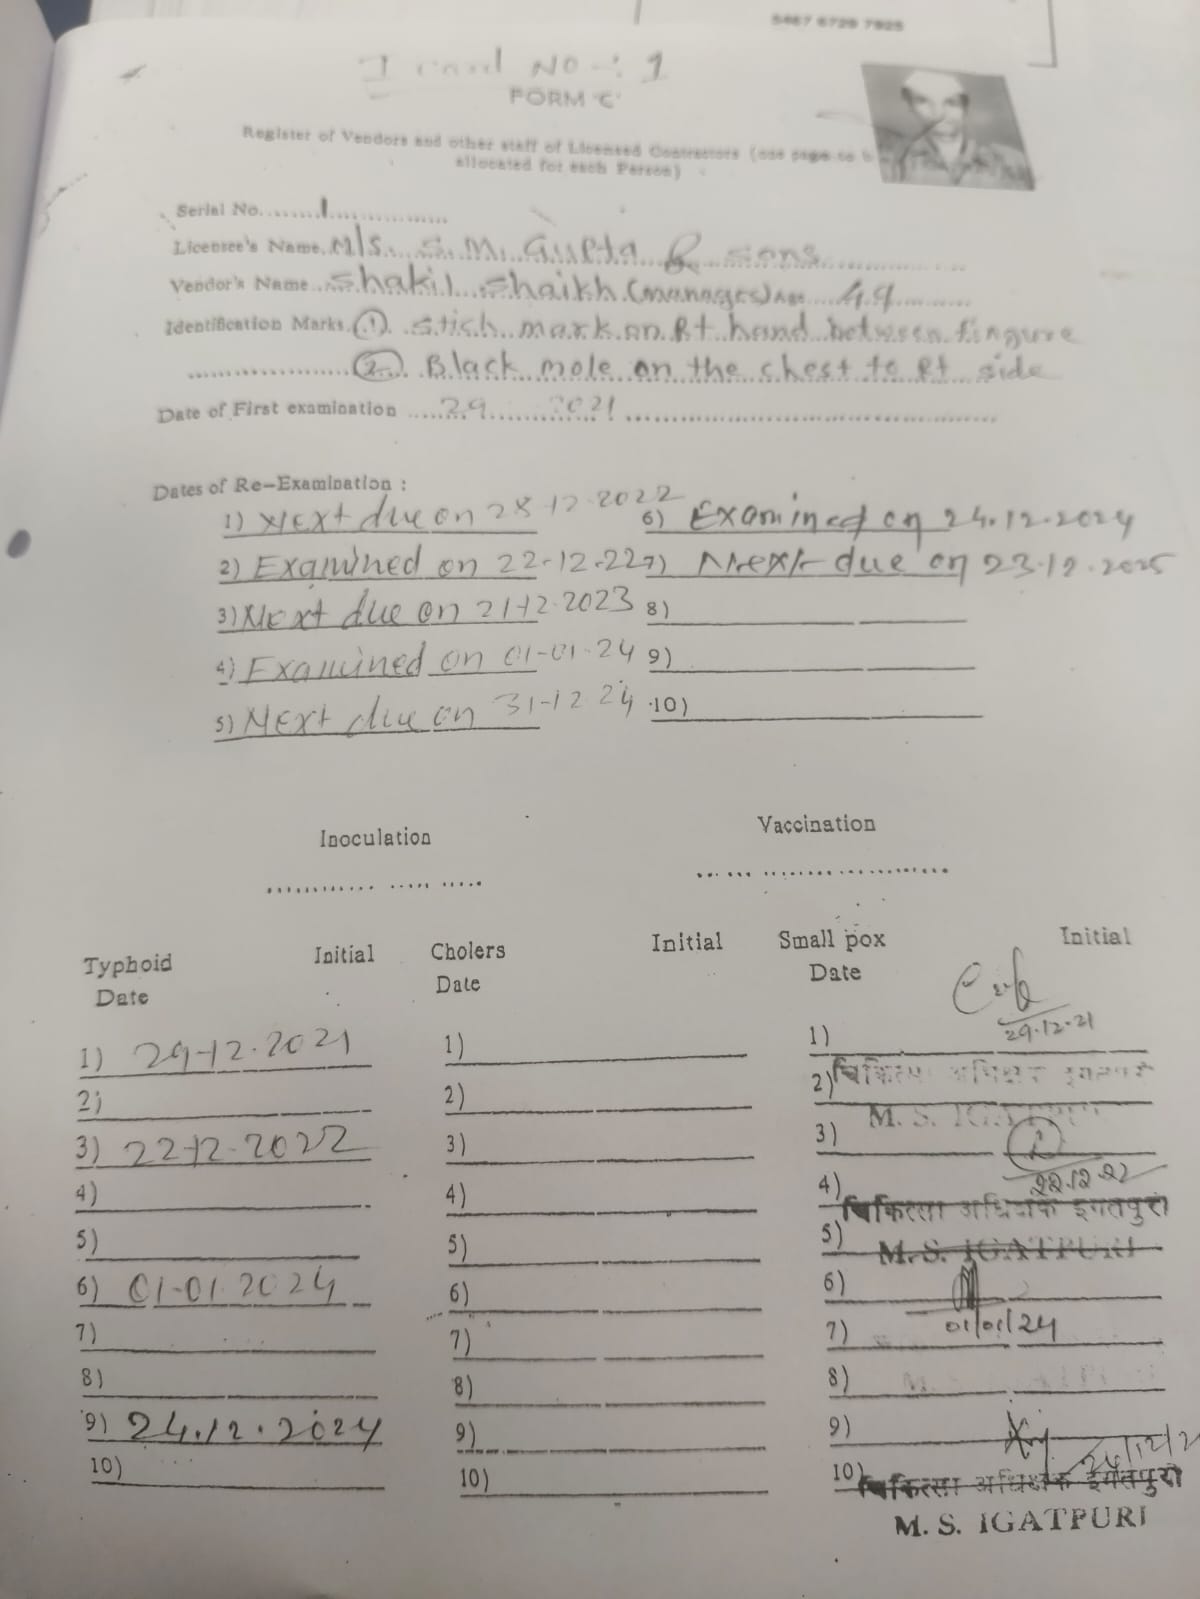 5467 6729 7925
I card NO -: 1
FORM 'C'
Register of Vendors and other staff of Licensed Contractors (one page to b
allocated for each Person)
Serial No. 1
Licensee's Name. M/s. S. M. Gupta & sons
Vendor's Name Shakil Shaikh (manages) Age 49
Identification Marks. (1) Stich mark on Rt hand between fingure
(2) Black mole on the chest to Rt side
Date of First examination 29 2021
Dates of Re-Examination :
1) Next due on 28-12-2022
2) Examined on 22-12-22
3) Next due on 21-12-2023
4) Examined on 01-01-24
5) Next due on 31-12-24
6) Examined on 24.12.2024
7) Next due on 23.12.2025
8)
9)
10)
Inoculation Vaccination
Typhoid Initial Cholers Initial Small pox Initial
Date Date Date
29.12.21
1) 29-12-2021 1) 1)
2) 2) 2) चिकित्सा अधिक्षक इगतपुरी
M. S. IGATPURI
3) 22-12-2022 3) 3)
22.12.22
4) 4) 4) चिकित्सा अधिक्षक इगतपुरी
5) 5) 5) M. S. IGATPURI
6) 01-01-2024 6) 6)
7) 7) 7) 01/01/24
8) 8) 8)
9) 24.12.2024 9) 9)
24/12/2
10) 10) 10) चिकित्सा अधिक्षक इगतपुरी
M. S. IGATPURI